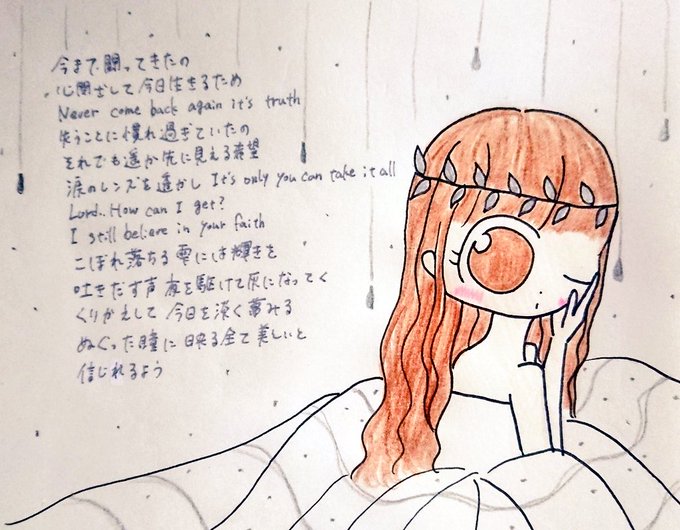 今まで闘ってきたの
心閉ざして今日生きるため
Never come back again it's truth
失うことに慣れ過ぎていたの
それでも遥か先に見える希望
涙のレンズを透かし It's only you can take it all
Lord.. How can I get?
I still believe in your faith
こぼれ落ちる雫には輝きを
吐きだす声 夜を駆けて灰になってく
くりかえして 今日を深く夢みる
ぬぐった瞳に 映る全て美しいと
信じれるよう